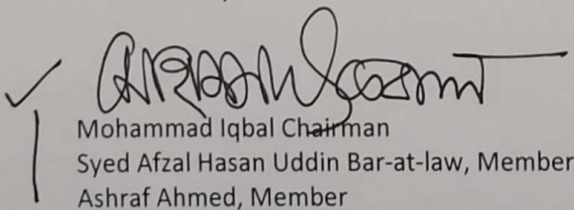 Mohammad Iqbal Chairman
Syed Afzal Hasan Uddin Bar-at-law, Member
Ashraf Ahmed, Member